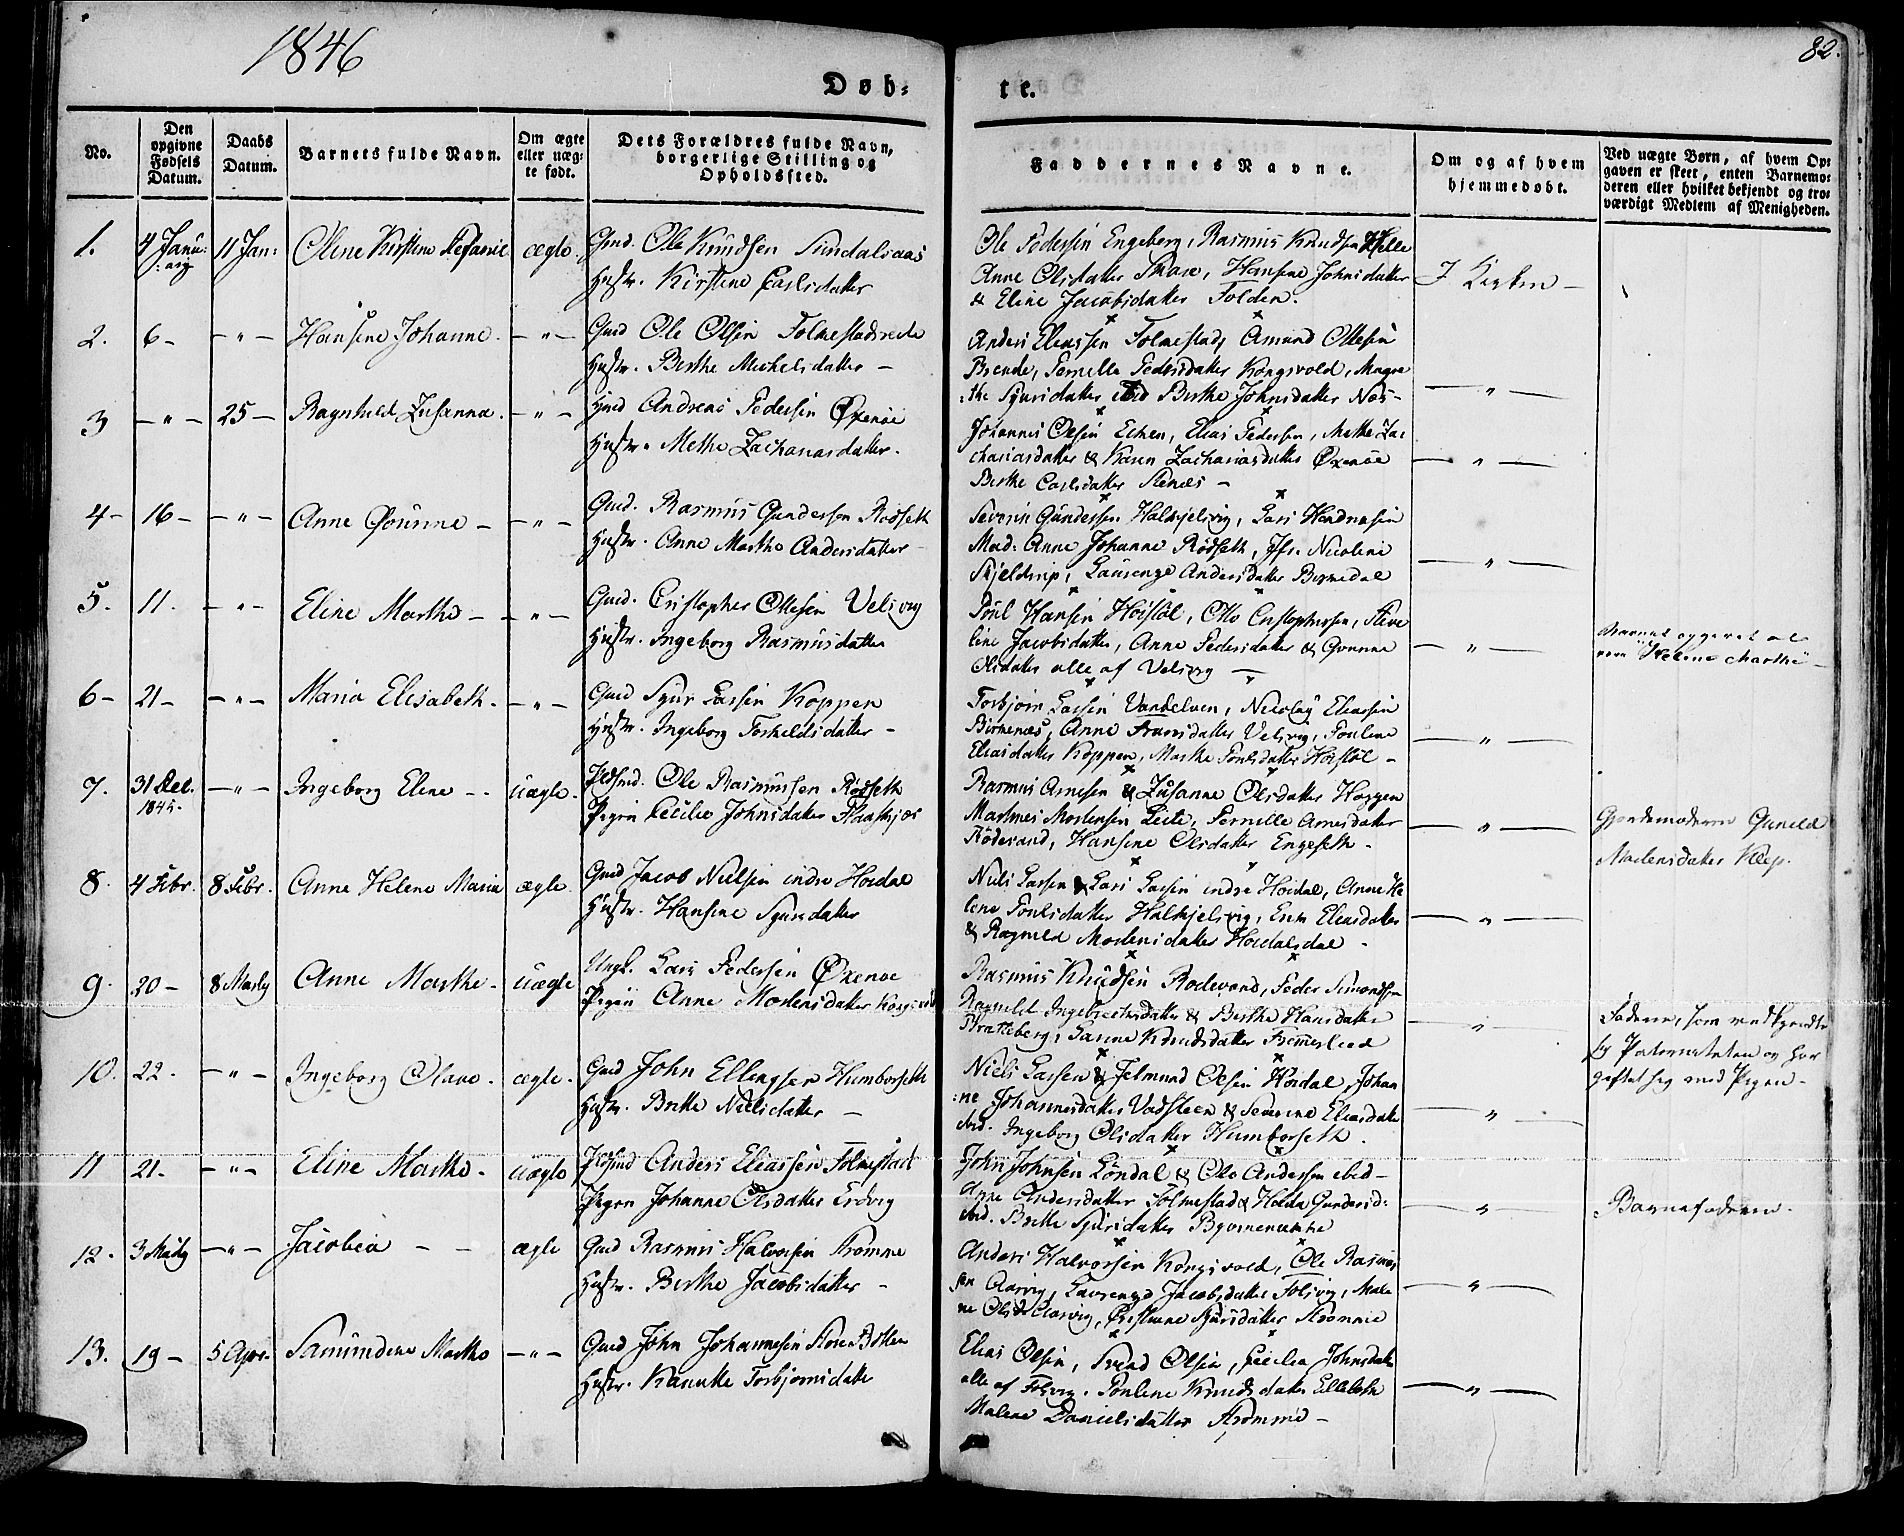 1846
82.
Døb-
te.
No.
Den opgivne Fødsels Datum.
Daabs Datum.
Barnets fulde Navn.
Om ægte eller uæg-te født.
Dets Forældres fulde Navn, borgerlige Stilling og Opholdssted.
Faddernes Navne.
Om og af hvem hjemmedøbt.
Ved uægte Børn, af hvem Op-gaven er skeet, enten Barnemo-deren eller hvilket bekjendt og tro-værdigt Medlem af Menigheden.
1. 4 Janu:ary 11 Jan: Oline Kirstine Stefanie ægte Gmd. Ole Knudsen Sundalsaas
Hustr. Kirstine Carlsdatter
Ole Pedersen Engeberg, Rasmus Knudsen Helle
Anne Olsdatter Skare, Hansine Johnsdatter
& Eline Jacobsdatter Folden.
I Kirken -
2. 6- -"- Hansine Johanne. -"- Gmd Ole Olsen Folmestad
Hustr. Berthe Michelsdatter -
Anders Eliassen Folmestad, Amund Ottesen
Brende, Pernille Pedersdatter Kongsvold, Magre
:the Sjursdatter Berthe Johnsdatter Næs-
-"-
3 -"- 25- Ragnhild Zusanna. -"- Gmd Andreas Pedersen Øxenøe
Hustr. Methe Zachariasdatter.
Johannes Olsen Echen, Elias Pedersen, Methe Za:
chariasdatter & Karen Zachariasdatter Øxenøe
Berthe Carlsdatter Stenæs -
-"-
4- 16- -"- Anne Gurine - -"- Gmd. Rasmus Gundersen Rødseth
Hustr. Anne Marthe Andersdatter
Severin Gundersen Halkjelsvig, Lars Hendricsen
Mad: Anne Johanne Rødseth, Jfr. Nicoline
Skjeldrup, Laurense Andersdatter Birkedal
-"-
5. 11. -"- Eline Marthe - -"- Gmd. Cristopher Ottesen Velsvig
Hustr. Ingeborg Rasmusdatter
Poul Hansen Høistøl, Otto Cristophersen,
line Jacobsdatter, Anne Pedersdatter & Gurine
Olsdatter alle af Velsvig -
-"-
Barnet opgivet at
være Helene Marthe -
6- 21- -"- Maria Elisabeth. -"- Gmd Sjur Larsen Koppen
Hustr. Ingeborg Torkeldsdatter -
Torbjørn Larsen Vardelven, Nicolay Eliassen
Birkenæs, Anne Velsvig, Pouline
Eliasdatter Koppen, Marthe Poulsdatter Høistøl -
-"-
7. 31 Dec. 1845. -"- Ingeborg Eline - - uægte. Ole Rasmussen Rødseth
Pigen Cecilie Johnsdatter Flaaskjær
Rasmus Arnesen & Zusanne Olsdatter Haggen
Martines Mortensen Leite, Pernille Arnesdatter
Rødevand, Hansine Olsdatter Engeseth -
-"-
Gjordemoderen Gunild
Mortensdatter Kleep.
8. 4 Febr. 8 Febr. Anne Helene Maria ægte. Gmd Jacob Nielsen indre Hovdal
Hustr. Hansine Sjursdatter
Niels Larsen Lars Larsen indre Hovdal, Anne He
lene Poulsdatter Halkjelsvig, Eliasdatter
& Ragnild Mortensdatter Hovdalsdal -
-"-
9. 20- 8 Marty Anne Marthe- uægte Ungk. Lars Pedersen Øxenøe
Pigen Anne Mortensdatter Kongsvold
Rasmus Knudsen Rødevand, Peder Simondsen
Ragnild Ingebrectsdatter & Berthe Hansdatter
Bratteberg, Larine Knudsdatter
-"-
Faderen, som vedkjendte
sig Paterniteten og har
giftet sig med Pigen -
10. 22. -"- Ingeborg Olave. ægte. Gmd John Ellingsen Humborseth
Hustr. Brithe Nielsdatter -
Niels Larsen & Jetmund Olsen Hovdal, Johan
:ne Johannesdatter Vadsteen & Severine Eliasdatter
ibid. Ingeborg Olsdatter Humborseth.
-"-
11 21. -"- Eline Marthe. uægte Anders Eliassen Folmestad
Pigen Johanne Olsdatter Ervig
John Johnsen Løndal & Ole Andersen ibid-
Anne Andersdatter Folmestad & Holda Gundersd:
ibid. Brithe Sjursdatter
-"-
Barnefaderen.
12. 3 Marty -"- Jacobia - - ægte Gmd Rasmus Halvorsen Strømme
Hustr. Berthe Jacobsdatter -
Anders Halvorsen Kongsvold, Ole Rasmus
sen Aarvig, Laurense Jacobsdatter Folsvig, Male
ne Olsd. Aarvig, Sjursdatter Strømme
-"-
13. 19- 5 Apr. Samundine Marthe -"- Gmd John Johannesen Store Botten
Hustr. Kanutte Torbjørnsdatte
Elias Olsen, Svend Olsen, Cecilia Johnsdatter
alle af Folsvig. Pouline Knudsdatter
Malene Danielsdatter Strømme -
-"-